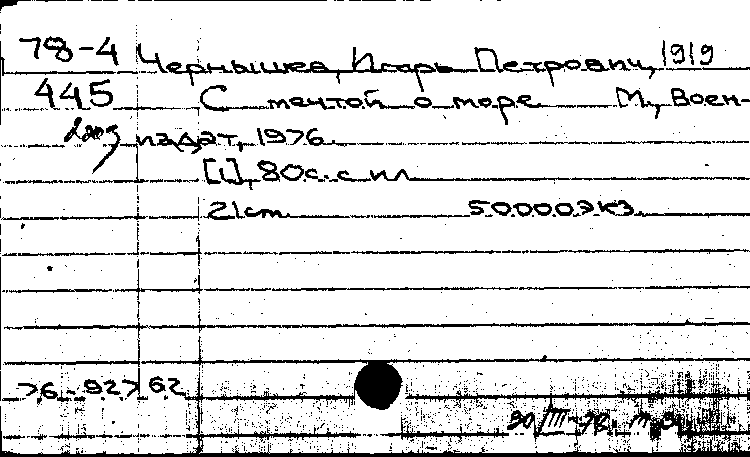 78-4 Чернышев, Игорь Петрович, 1919
445 С мечтой о море М., Воен-
издат, 1976.
[1], 80с. с ил
21 cm. 50000экз.
76-92762
30/III-78.